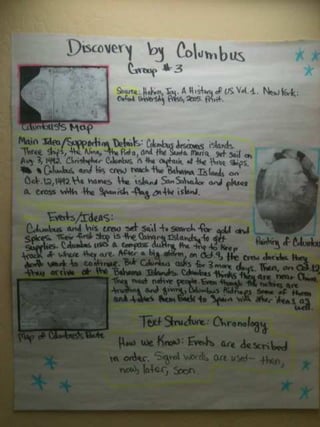 Discovery by Columbus
Group #3
Source: Hakim, Joy. A History of US. Vol. 1. New York:
Oxford University Press, 2005. Print.
Columbus's Map
Main Idea/Supporting Details: Columbus discovers islands.
Three ships, the Nina, the Pinta, and the Santa Maria, set sail on
Aug 3, 1492. Christopher Columbus is the captain of the three ships.
Columbus and his crew reach the Bahama Islands on
Oct. 12, 1492. He names the island San Salvador and places
a cross with the Spanish flag on the island.
Events/Ideas:
Columbus and his crew set sail to search for gold and
spices. Their first stop is the Canary Islands to get
supplies. Columbus uses a compass during the trip to keep
track of where they are. After a big storm, on Oct 9, the crew decides they
don't want to continue. But Columbus asks for 3 more days. Then, on Oct. 12,
they arrive at the Bahama Islands. Columbus thinks they are near China.
They meet native people. Even though the natives are
trusting and giving, Columbus kidnaps some of them
and takes them back to Spain with other items as
well.
Painting of Columbus
Map of Columbus's Route
Text Structure: Chronology
How We Know: Events are described
in order. Signal words are used- then,
now, later, soon.